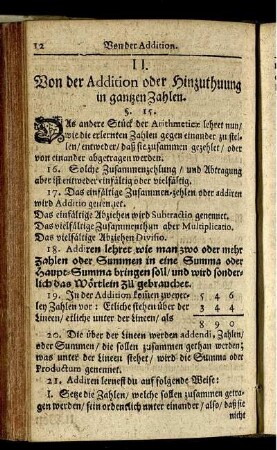 12 Von der Addition.
II.
Von der Addition oder Hinzuthuung
in gantzen Zahlen.
§. 15.
DAs andere Stück der Arithmeticæ lehret nun/
wie die erlernten Zahlen gegen einander zu stel-
len/ entweder/ daß sie zusammen gezehlet / oder
von einander abgetragen werden.
16. Solche Zusammenzehlung / und Abtragung
aber ist entweder einfältig oder vielfältig.
17. Das einfältige Zusammen-zehlen oder addiren
wird Additio genennet.
Das einfältige Abziehen wird Subtractio genennet.
Das vielfältige Zusammenthun aber Multiplicatio.
Das vielfältige Abziehen Divisio.
18. Addiren lehret wie man zwo oder mehr
Zahlen oder Summen in eine Summa oder
Haupt-Summa bringen soll/ und wird sonder-
lich das Wörtlein zu gebrauchet.
19. In der Addition können zweyer- 5 4 6
ley Zahlen vor: Etliche stehen über der 3 4 4
Linien/ etliche unter der Linien/ als
8 9 0
20. Die über der Linien werden addendi, Zahlen/
oder Summen / die sollen zusammen gethan werden;
was unter der Linien stehet/ wird die Summa oder
Productum genennet.
21. Addiren lernest du auf folgende Weise:
I. Setze die Zahlen/ welche sollen zusammen getra-
gen werden/ fein ordentlich unter einander / also/ daß sie
nicht